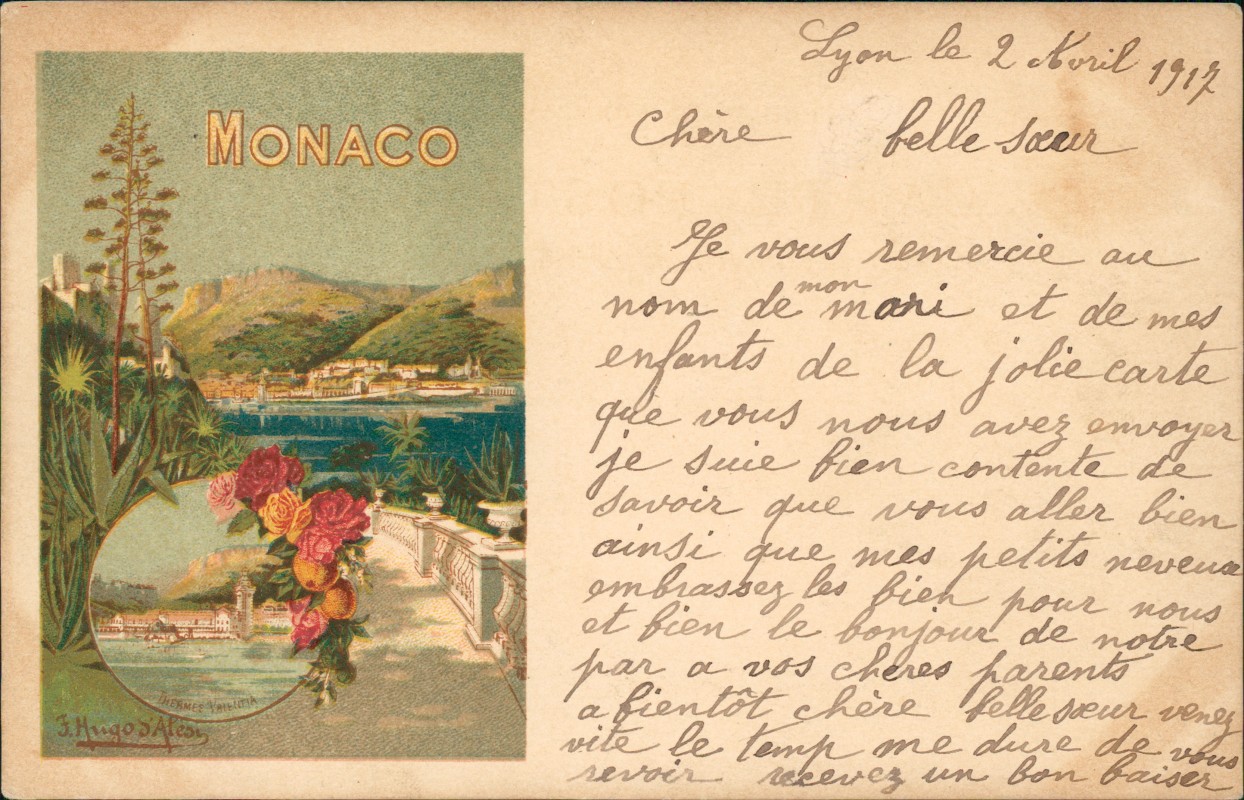 MONACO
THERMES VALENTIA
F. Hugo d'Alési
Lyon le 2 Avril 1917
Chère belle sœur
Je vous remercie au
nom de mon mari et de mes
enfants de la jolie carte
que vous nous avez envoyer
je suie bien contente de
savoir que vous aller bien
ainsi que mes petits neveux
embrassez les bien pour nous
et bien le bonjour de notre
par a vos chères parents
a bientôt chère belle sœur venez
vite le temp me dure de vous
revoir recevez un bon baiser